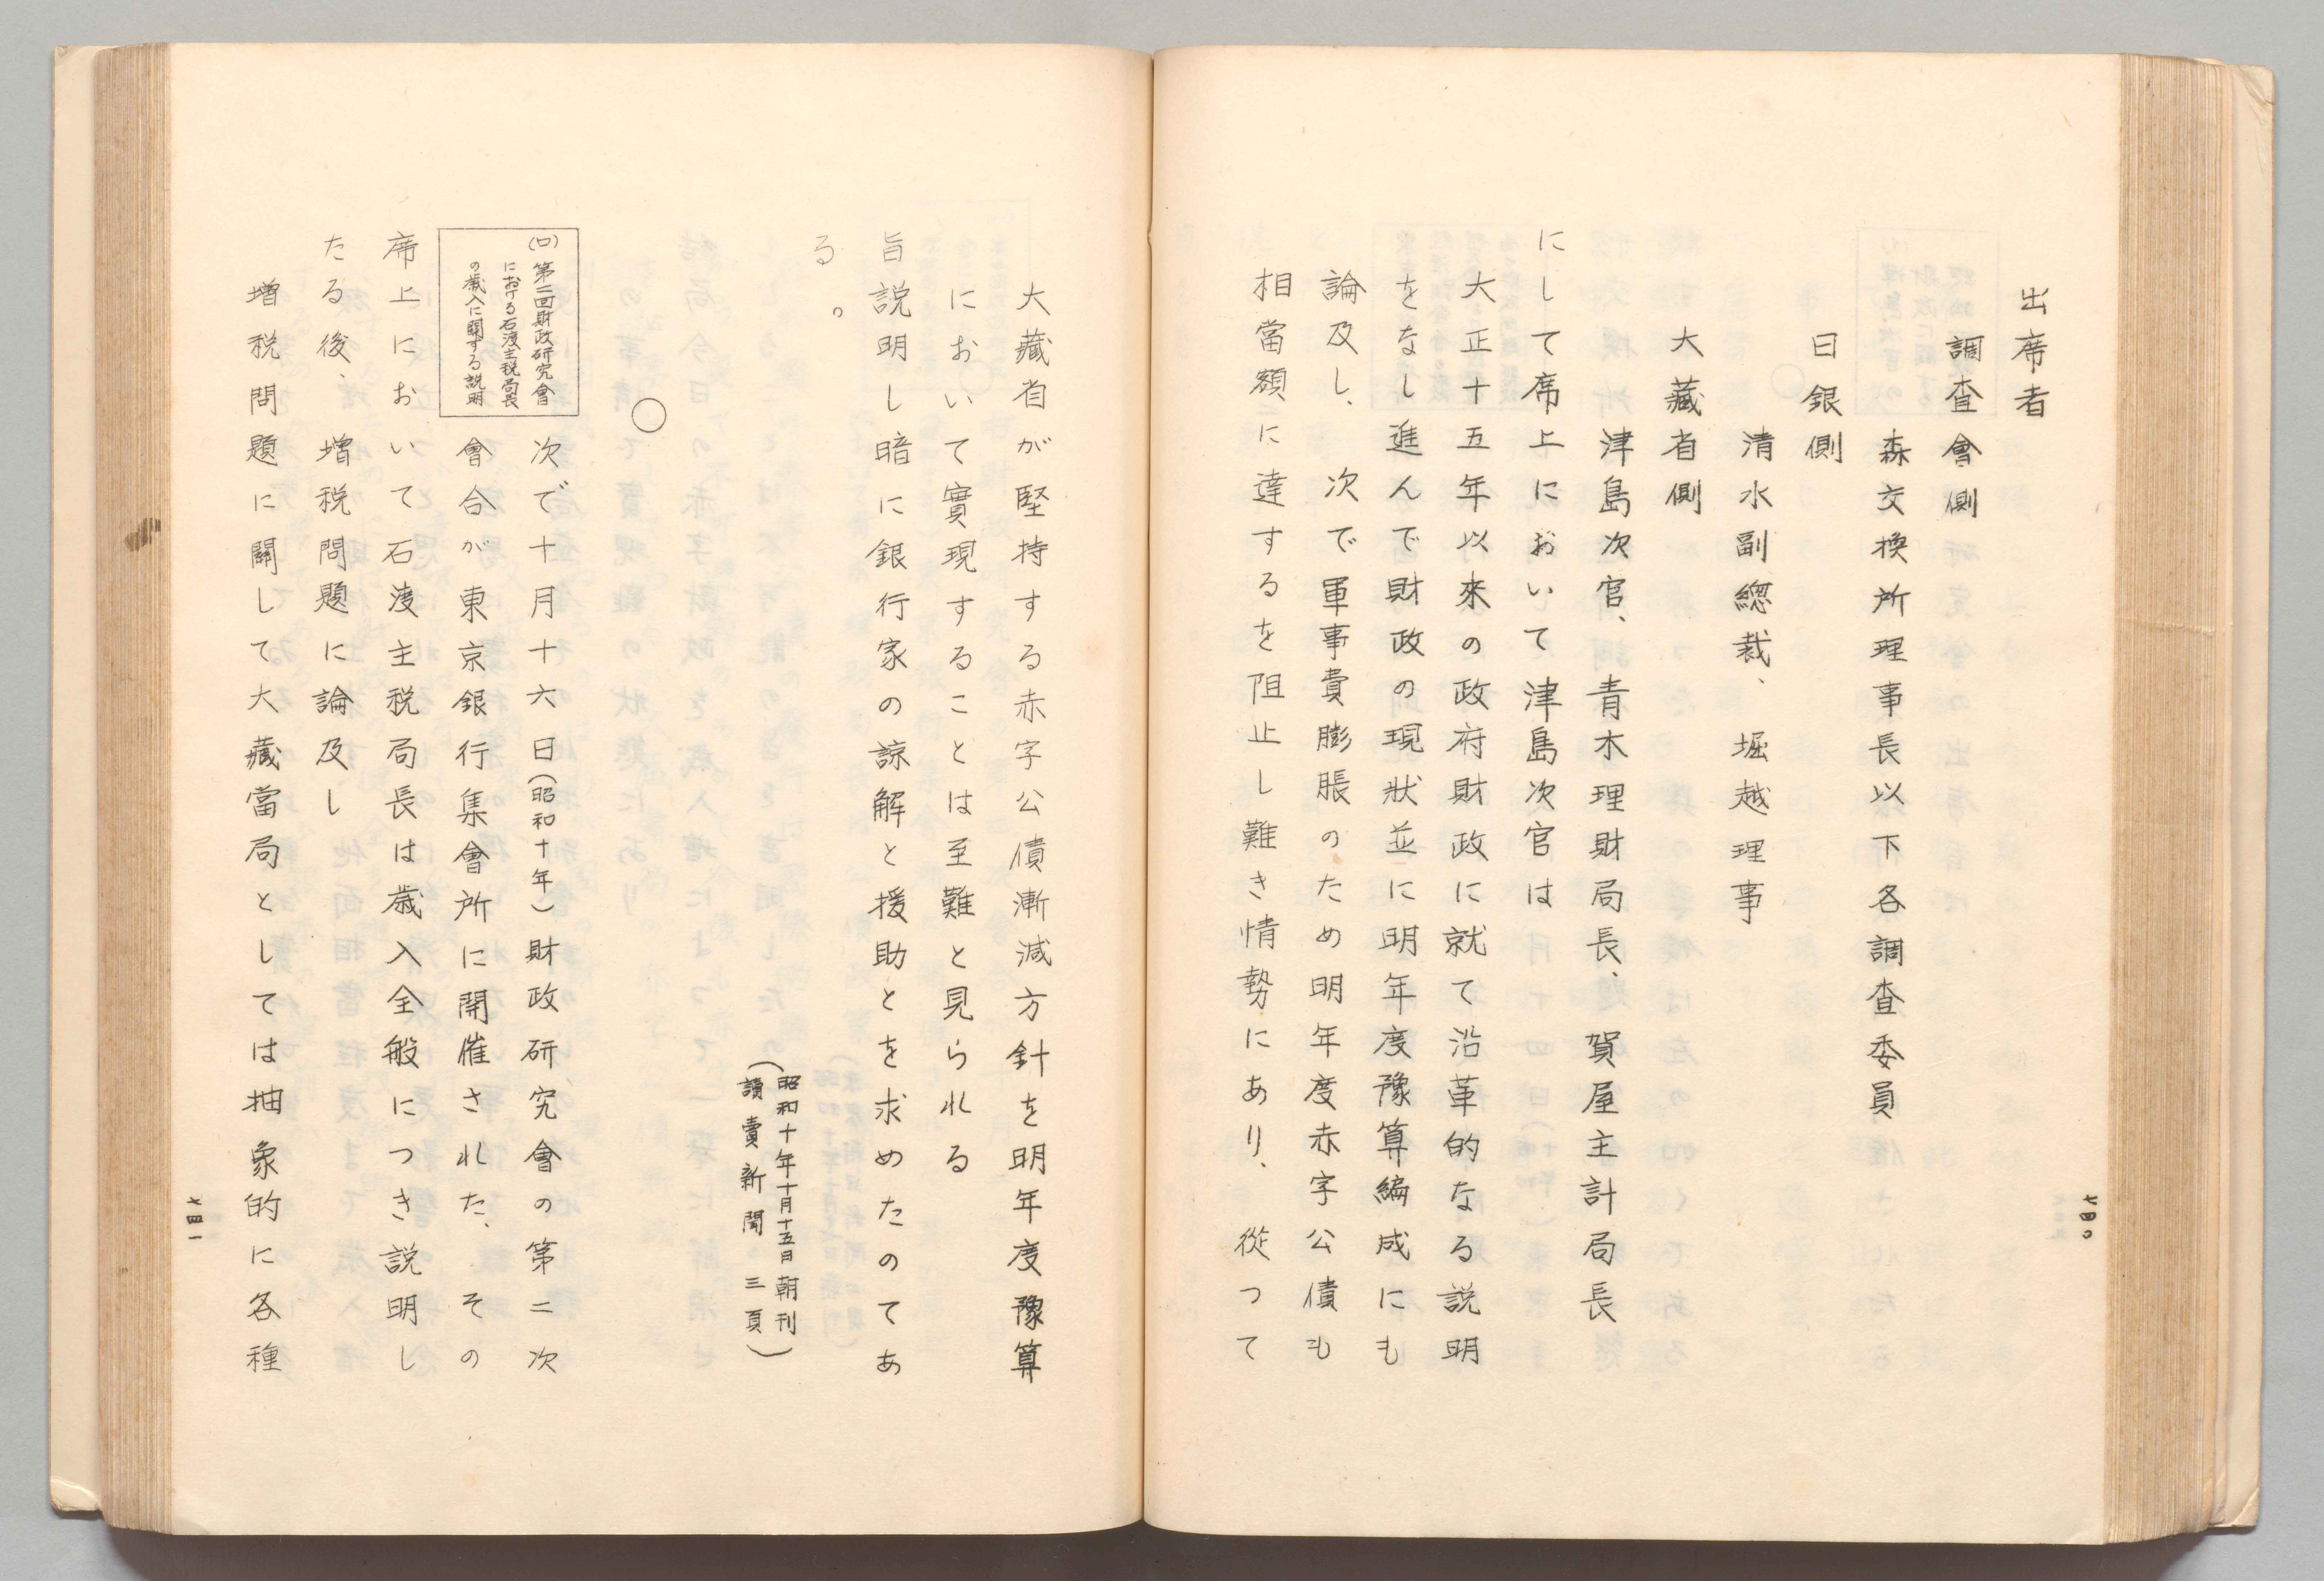 出席者
調査會側
森交換所理事長以下各調査委員
日銀側
清水副總裁、堀越理事
大藏省側
津島次官、青木理財局長、賀屋主計局長
にして席上において津島次官は
大正十五年以來の政府財政に就て沿革的なる説明
をなし進んで財政の現狀並に明年度豫算編成にも
論及し、次で軍事費膨脹のため明年度赤字公債も
相當額に達するを阻止し難き情勢にあり、從つて
七四〇
大藏省が堅持する赤字公債漸減方針を明年度豫算
において實現することは至難と見られる
旨説明し暗に銀行家の諒解と援助とを求めたのてあ
る。
(昭和十年十月十五日朝刊
讀賣新聞 三頁)
○
(ロ) 第二回財政研究會
における石渡主税局長
の歳入に關する説明
次で十月十六日(昭和十年)財政研究會の第二次
會合が東京銀行集會所に開催された、その
席上において石渡主税局長は歳入全般につき説明し
たる後、增税問題に論及し
增税問題に關して大藏當局としては抽象的に各種
七四一